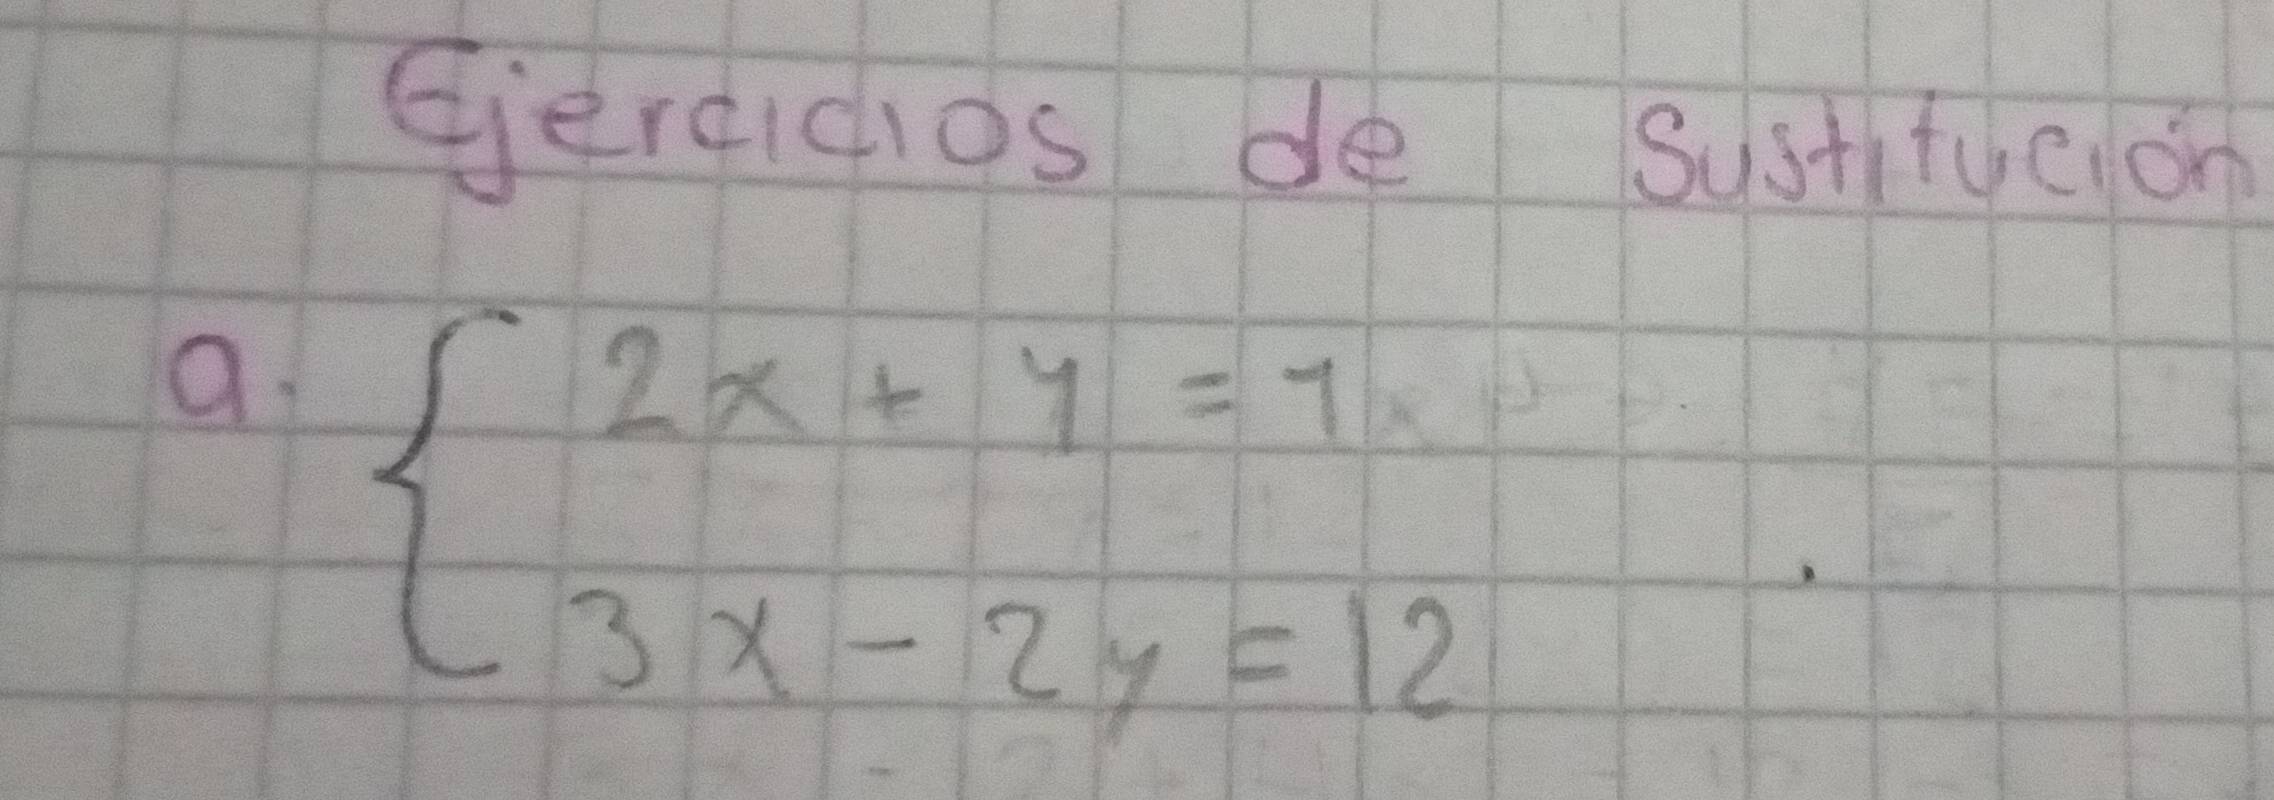 Ejercicios de Sustitución
a. { 2x + y = 1
3x - 2y = 12